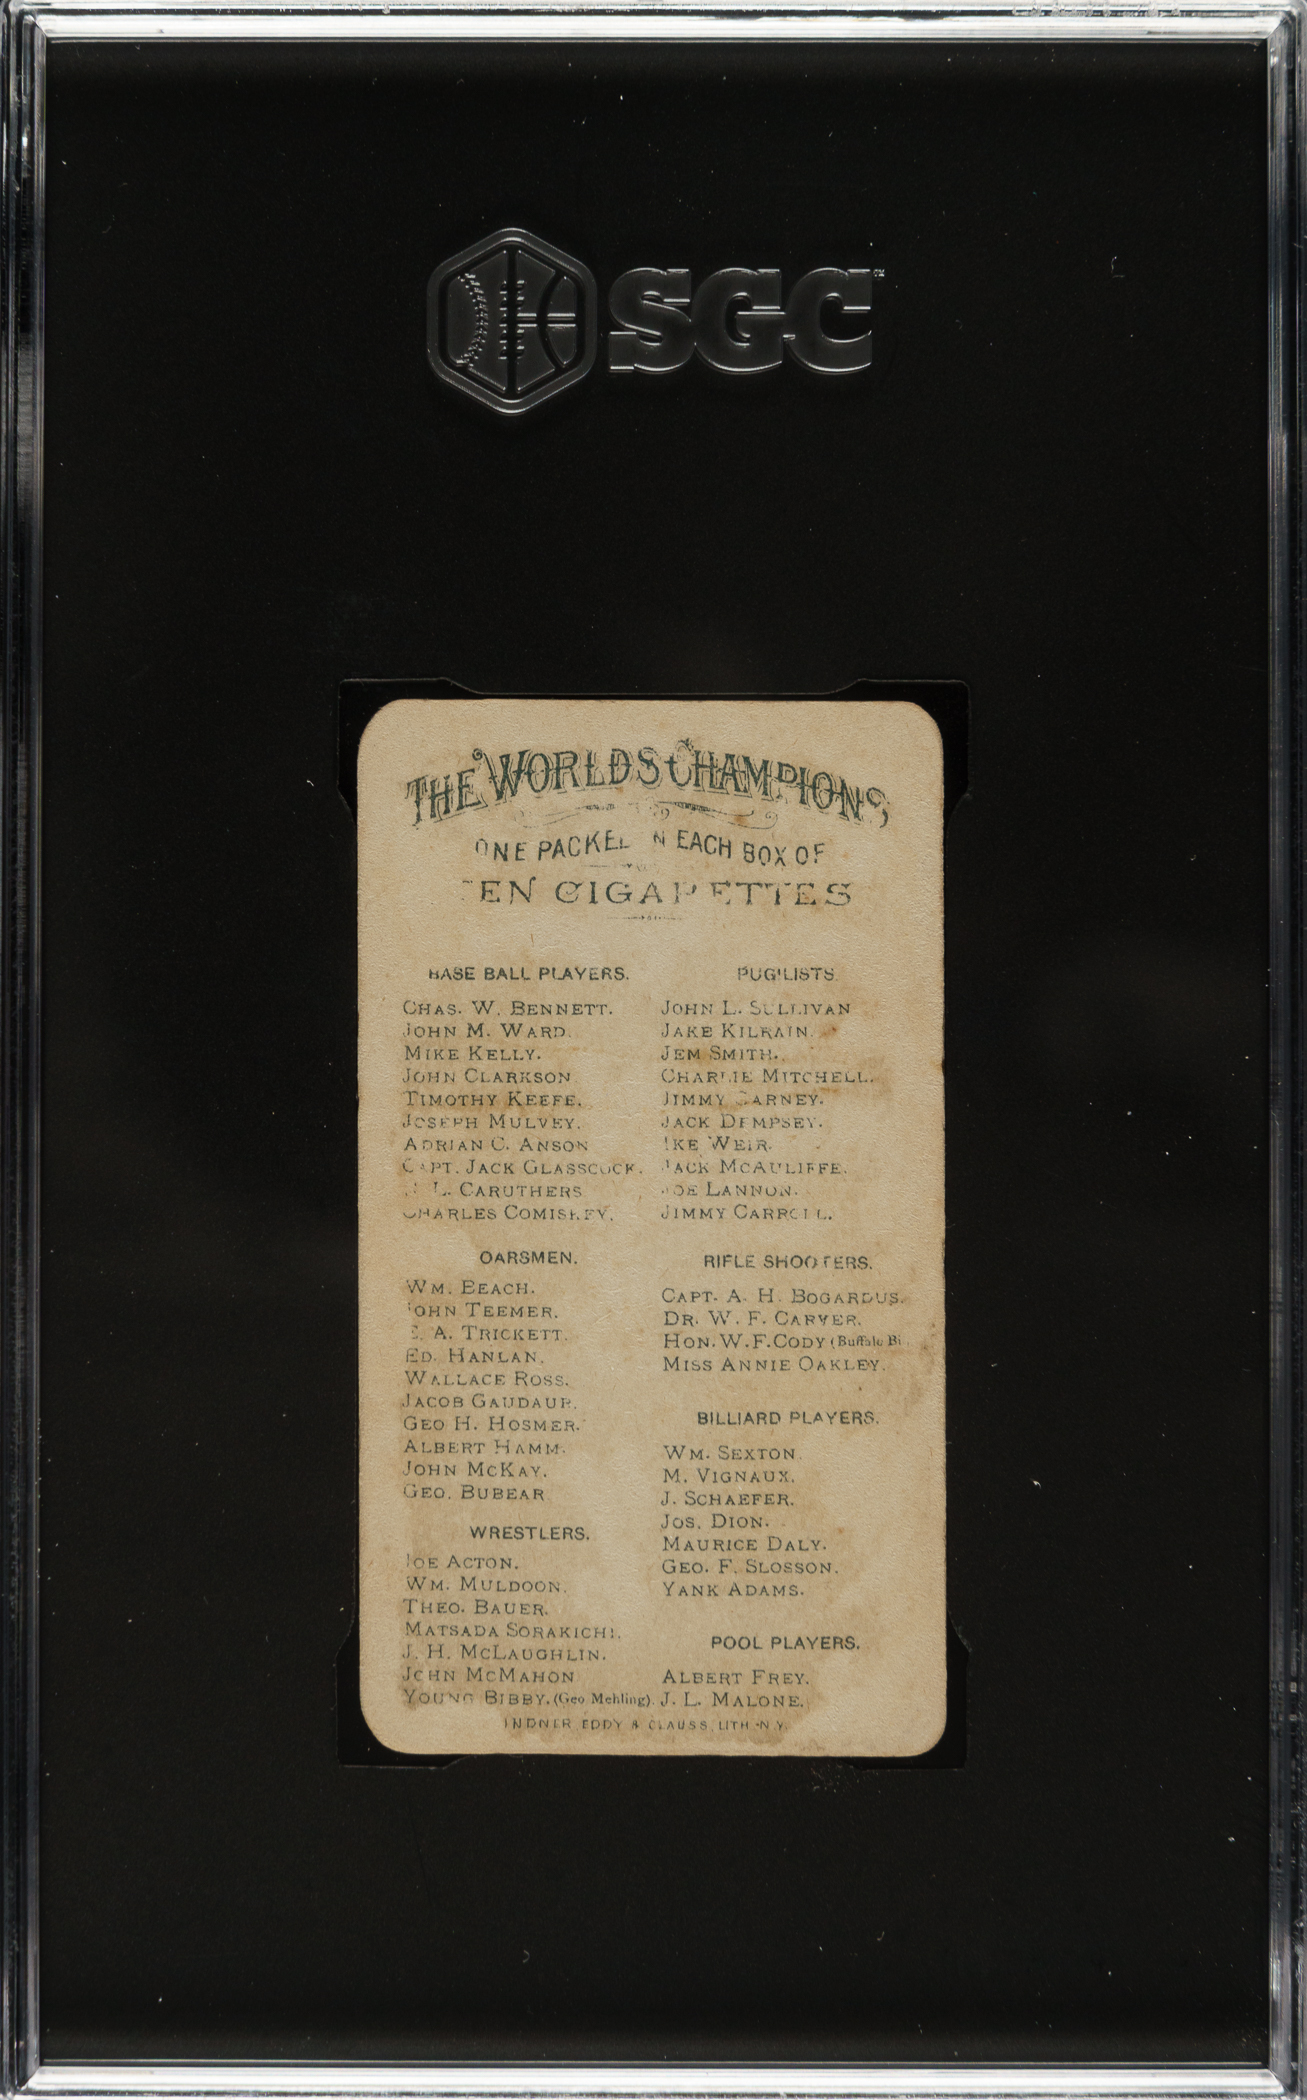 SGC
THE WORLDS CHAMPIONS
ONE PACKED IN EACH BOX OF
TEN CIGARETTES
BASE BALL PLAYERS.
CHAS. W. BENNETT.
JOHN M. WARD.
MIKE KELLY.
JOHN CLARKSON
TIMOTHY KEEFE.
JOSEPH MULVEY.
ADRIAN C. ANSON
CAPT. JACK GLASSCOCK.
L. CARUTHERS
CHARLES COMISKEY.
OARSMEN.
WM. BEACH.
JOHN TEEMER.
E. A. TRICKETT.
ED. HANLAN.
WALLACE ROSS.
JACOB GAUDAUR.
GEO H. HOSMER.
ALBERT HAMM.
JOHN MCKAY.
GEO. BUBEAR
WRESTLERS.
JOE ACTON.
WM. MULDOON.
THEO. BAUER.
MATSADA SORAKICHI.
J. H. MCLAUGHLIN.
JOHN MCMAHON
YOUNG BIBBY. (Geo Mehling).
PUGILISTS.
JOHN L. SULLIVAN
JAKE KILRAIN.
JEM SMITH.
CHARLIE MITCHELL.
JIMMY CARNEY.
JACK DEMPSEY.
IKE WEIR.
JACK MCAULIFFE.
JOE LANNON.
JIMMY CARROLL.
RIFLE SHOOTERS.
CAPT. A. H. BOGARDUS.
DR. W. F. CARVER.
HON. W.F. CODY (Buffalo Bi
MISS ANNIE OAKLEY.
BILLIARD PLAYERS.
WM. SEXTON.
M. VIGNAUX.
J. SCHAEFER.
JOS. DION.
MAURICE DALY.
GEO. F. SLOSSON.
YANK ADAMS.
POOL PLAYERS.
ALBERT FREY.
J. L. MALONE.
LINDNER, EDDY & CLAUSS, LITH. N.Y.